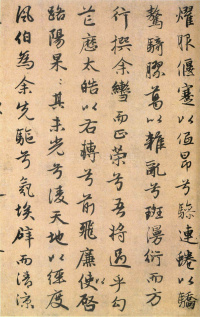 燿服偃蹇以低昂兮驂連蜷以驕
驁騎膠葛以雜亂兮斑漫衍而方
行撰余轡而正策兮吾將過乎勾
芒歷太皓以右轉兮前飛廉使啓
路陽杲〻其未光兮淩天地以徑度
風伯為余先驅兮氛埃辟而清涼